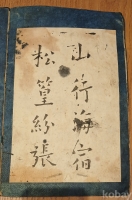 山行海宿
松篁紛張
kobay